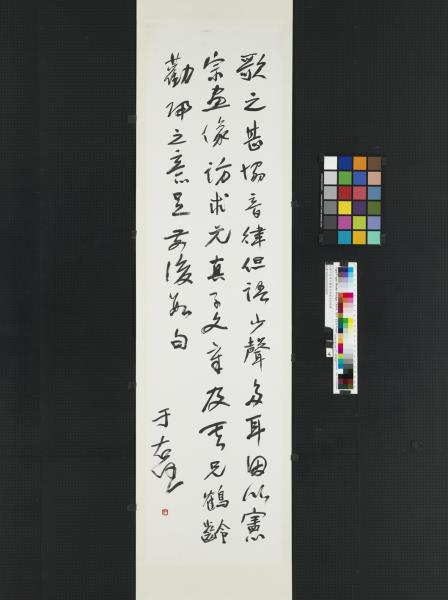 歌之甚協音律但語少聲多耳因以憲
宗畫像訪求元真子文章及其兄鶴齡
勸歸之意足前後數句
于右任